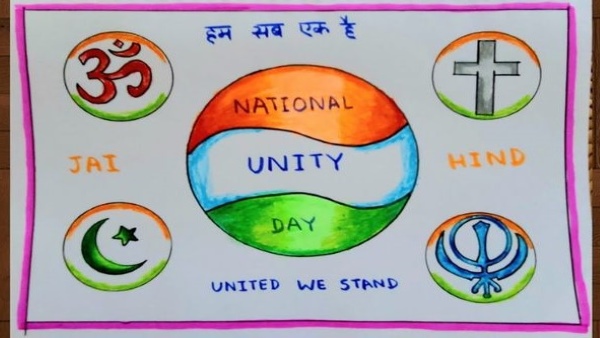 हम सब एक है
NATIONAL
JAI UNITY HIND
DAY
UNITED WE STAND